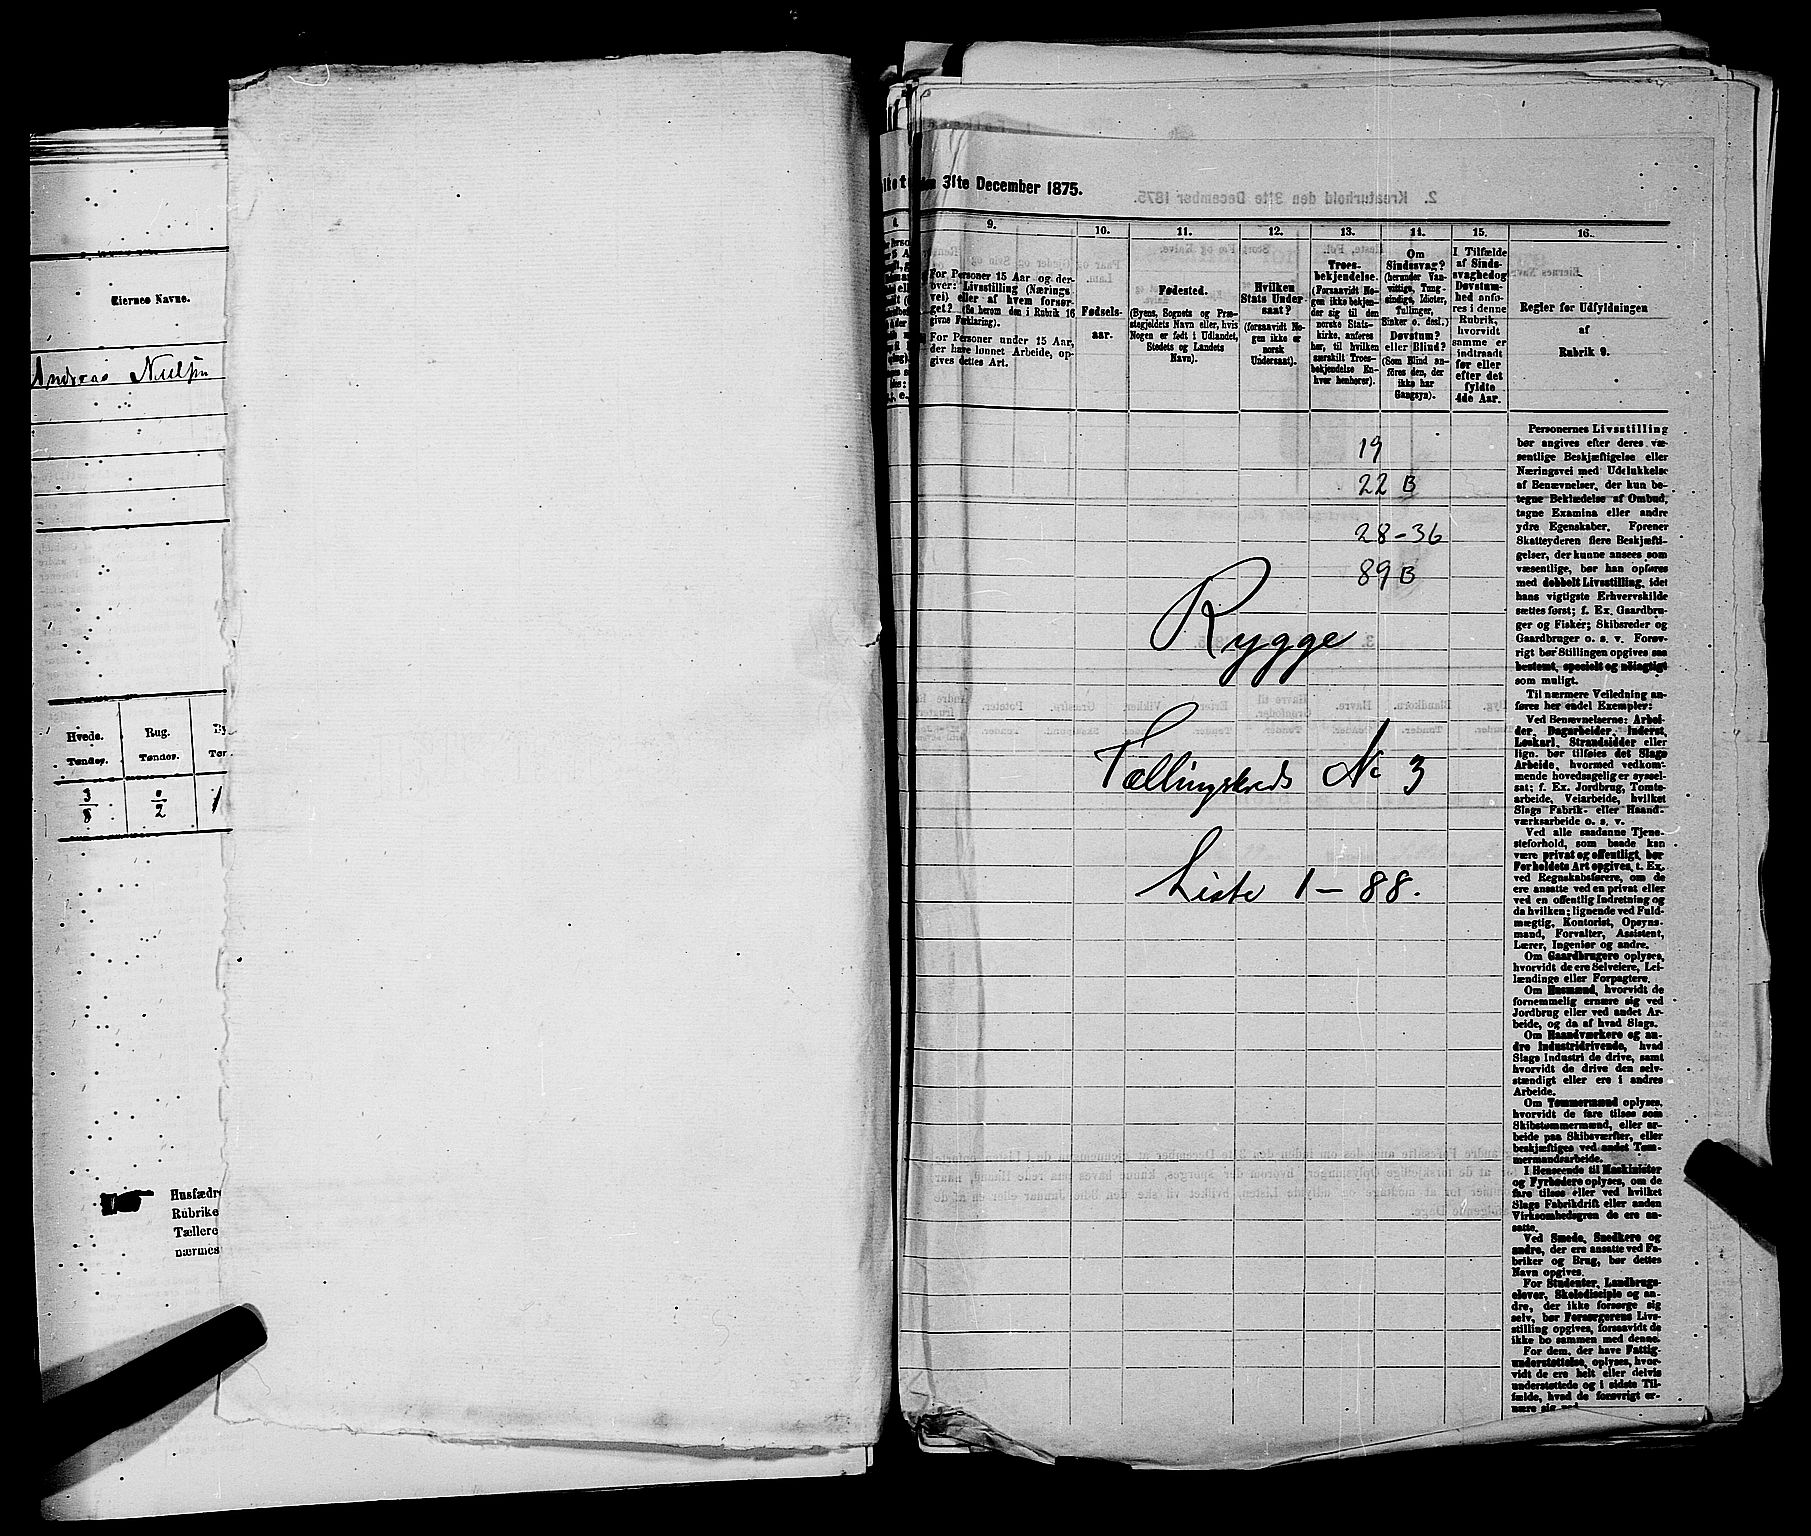 Eiernes Navne.
Andreas
Hvede.
Rug.
Tønder.
Tønder.
3/8
Husfædre
Rubrike
Tællere
nærmes
31te December 1875.
9.
10.
11.
12.
13.
14.
15.
16.
For Personer 15 Aar og der-
over: Livsstilling (Nærings
vei) eller af hvem forsør-
get? (Se herom den i Rubrik 16
givne Forklaring).
For Personer under 15 Aar,
der have lønnet Arbeide, op-
gives dettes Art.
Fødsels-
aar.
Fødested.
(Byens, Sognets og Præ-
stegjeldets Navn eller, hvis
Nogen er født i Udlandet,
Stedets og Landets
Navn).
Hvilken
Stats Under-
saat?
(forsaavidt No-
gen ikke er
norsk
Undersaat).
Troes-
bekjendelse.
(Forsaavidt No-
gen ikke bekjen-
der sig til den
norske Stats-
kirke, anføres
her, til hvilken
særskilt Troes-
bekjendelse En-
hver henhører).
Om
Sindssvag?
(herunder Van-
vittige, Tung-
sindige, Idioter,
Tullinger,
Sinker o. desl.)
Døvstum?
eller Blind?
(Som Blind an-
føres den, der
ikke har
Gangsyn).
I Tilfælde
af Sinds-
svaghed og
Døvstum-
hed anfø-
res i denne
Rubrik,
hvorvidt
samme er
indtraadt
før eller
efter det
fyldte
4de Aar.
Regler for Udfyldningen
af
Rubrik 9.
19
22 B
28-36
89 B
Rygge
Tællingskreds No 3
Liste 1 - 88.
Personernes Livsstilling
bør angives efter deres væ-
sentlige Beskjæftigelse eller
Næringsvei med Udelukkelse
af Benævnelser, der kun be-
tegne Beklædelse af Ombud,
tagne Examina eller andre
ydre Egenskaber. Forener
Skatteyderen flere Beskjæfti-
gelser, der kunne ansees som
væsentlige, bør han opføres
med dobbelt Livsstilling, idet
hans vigtigste Erhvervskilde
sættes først; f. Ex. Gaardbru-
ger og Fisker; Skibsreder og
Gaardbruger o. s. v. Forøv-
rigt bør Stillingen opgives saa
bestemt, specielt og nøiagtigt
som muligt.
Til nærmere Veiledning an-
føres her endel Exempler:
Ved Benævnelserne: Arbei-
der, Dagarbeider, Inderst,
Løskarl, Strandsidder eller
lign. bør tilføies det Slags
Arbeide, hvormed vedkom-
mende hovedsagelig er syssel-
sat; f. Ex. Jordbrug, Tomte-
arbeide, Veiarbeide, hvilket
Slags Fabrik- eller Haand-
værksarbeide o. s. v.
Ved alle saadanne Tjene-
steforhold, som baade kan
være privat og offentligt, bør
Forholdets Art opgives, t. Ex.
ved Regnskabsførere, om de
ere ansatte ved en privat eller
ved en offentlig Indretning og
da hvilken; lignende ved Fuld-
mægtig, Kontorist, Opsyns-
mand, Forvalter, Assistent,
Lærer, Ingeniør og andre.
Om Gaardbrugere oplyses,
hvorvidt de ere Selveiere, Lei-
lændinge eller Forpagtere.
Om Husmænd, hvorvidt de
fornemmelig ernære sig ved
Jordbrug eller ved andet Ar-
beide, og da af hvad Slags.
Om Haandværkere og an-
dre Industridrivende, hvad
Slags Industri de drive, samt
hvorvidt de drive den selv-
stændigt eller ere i andres
Arbeide.
Om Tømmermænd oplyses,
hvorvidt de fare tilsøs som
Skibstømmermænd, eller ar-
beide paa Skibsværfter, eller
beskjæftiges ved andet Tøm-
mermandsarbeide.
I Henseende til Maskinister
og Fyrbødere oplyses, om de
fare tilsøs eller ved hvilket
Slags Fabrikdrift eller anden
Virksomhedsgren de ere an-
satte.
Ved Smede, Snedkere og
andre, der ere ansatte ved Fa-
briker og Brug, bør dettes
Navn opgives.
For Studenter, Landbrugs-
elever, Skoledisciple og an-
dre, der ikke forsørge sig
selv, bør Forsørgerens Livs-
stilling opgives, forsaavidt de
ikke bo sammen med denne.
For dem, der have Fattig-
understøttelse, oplyses, hvor-
vidt de ere helt eller delvis
understøttede og i sidste Til-
fælde, hvad de forøvrigt er-
nære sig ved.